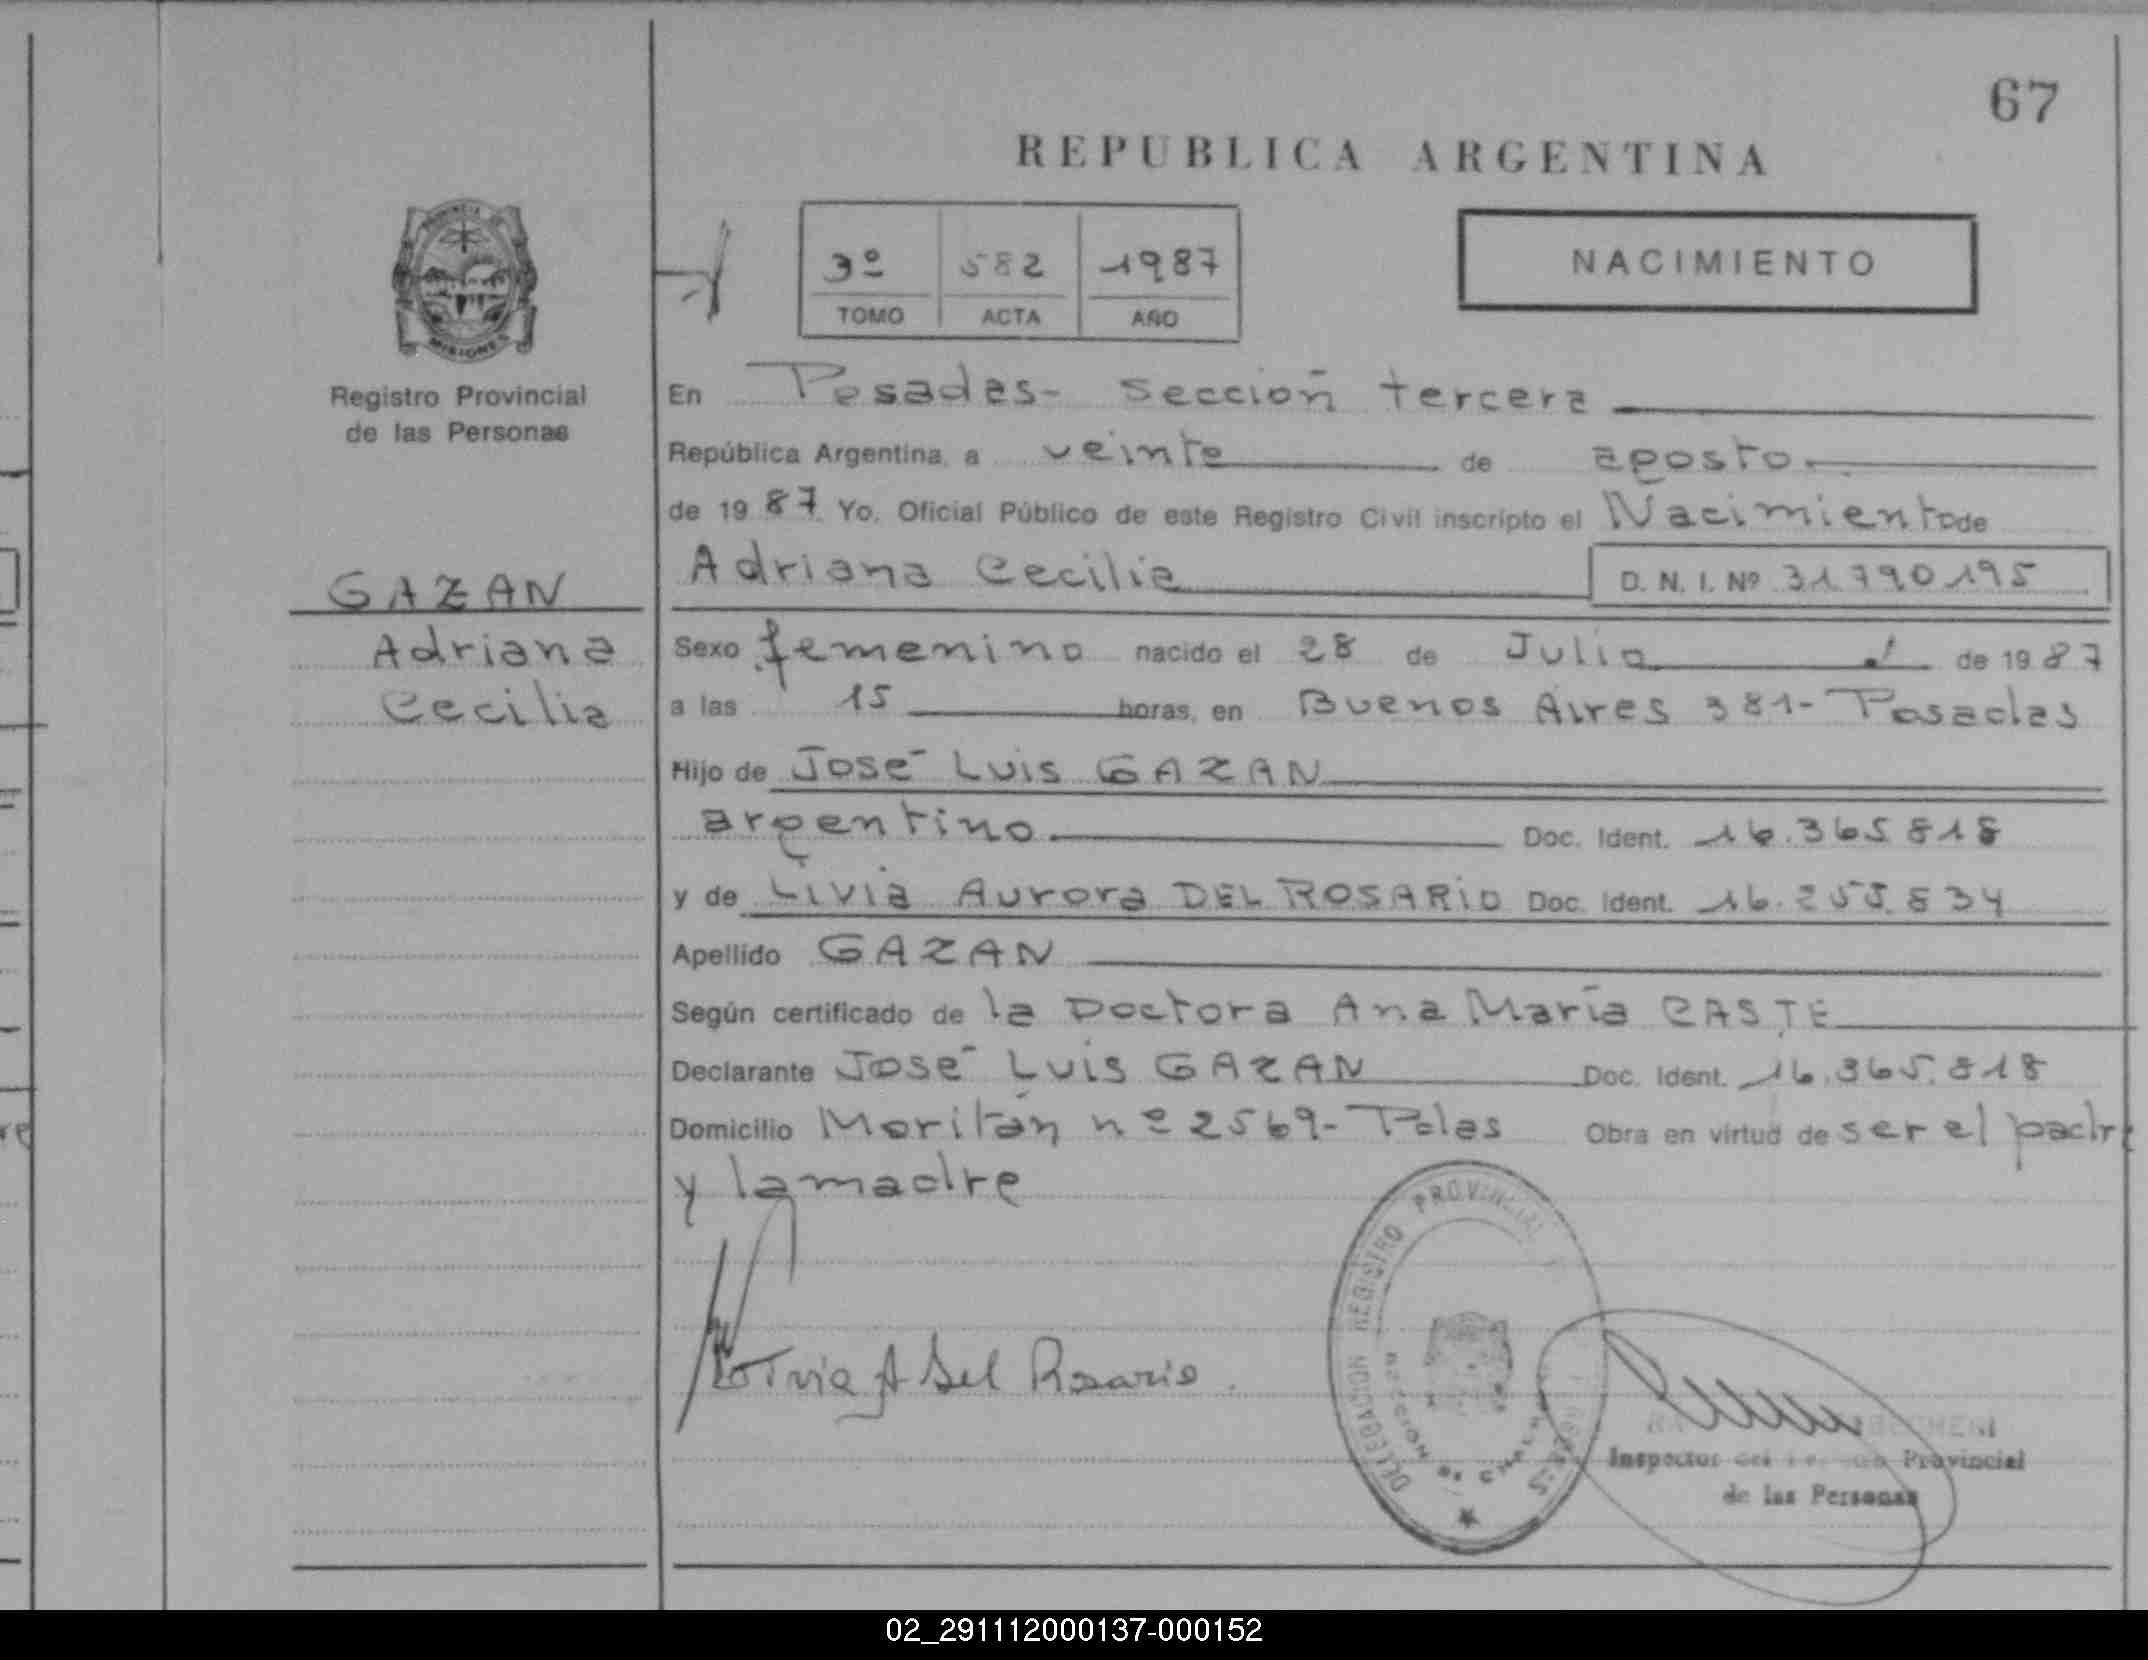 67
REPUBLICA ARGENTINA
3º 582 1987
TOMO ACTA AÑO
NACIMIENTO
MISIONES
Registro Provincial
de las Personas
GAZAN
Adriana
Cecilia
En Posadas- Sección tercera
República Argentina, a veinte de agosto.
de 1987 Yo, Oficial Público de este Registro Civil inscripto el Nacimiento de
Adriana Cecilia D. N. I. Nº 31790195
Sexo femenino nacido el 28 de Julio de 1987
a las 15 horas, en Buenos Aires 381- Posadas
Hijo de José Luis GAZAN
argentino. Doc. Ident. 16.365.818
y de Livia Aurora DEL ROSARIO Doc. Ident. 16.255.834
Apellido GAZAN
Según certificado de la Doctora Ana María CASTE
Declarante José Luis GAZAN Doc. Ident. 16.365.818
Domicilio nº 2569- Pdas Obra en virtud de ser el padre
y la madre
Livia A del Rosario.
DELEGACION REGISTRO PROVINCIAL
Inspector del Provincial
de las Personas
02_291112000137-000152